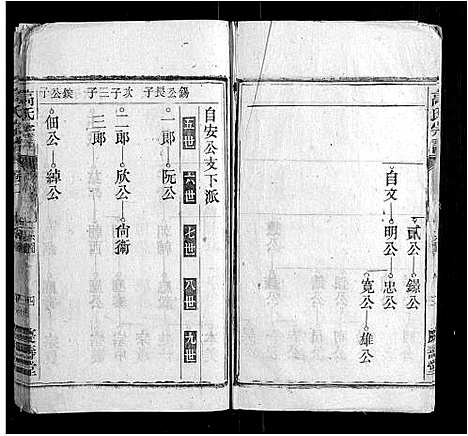 高氏宗譜
貳公 鐌公
自文 明公 忠公
寛公 雄公
慶壽堂
自安公支下派
五世 六世 七世 八世 九世
錫公長子
一郎 阮公
次子
二郎 欣公 尙衛
三子
三郎
鋑公子
佃公 綽公
高氏宗譜
慶壽堂